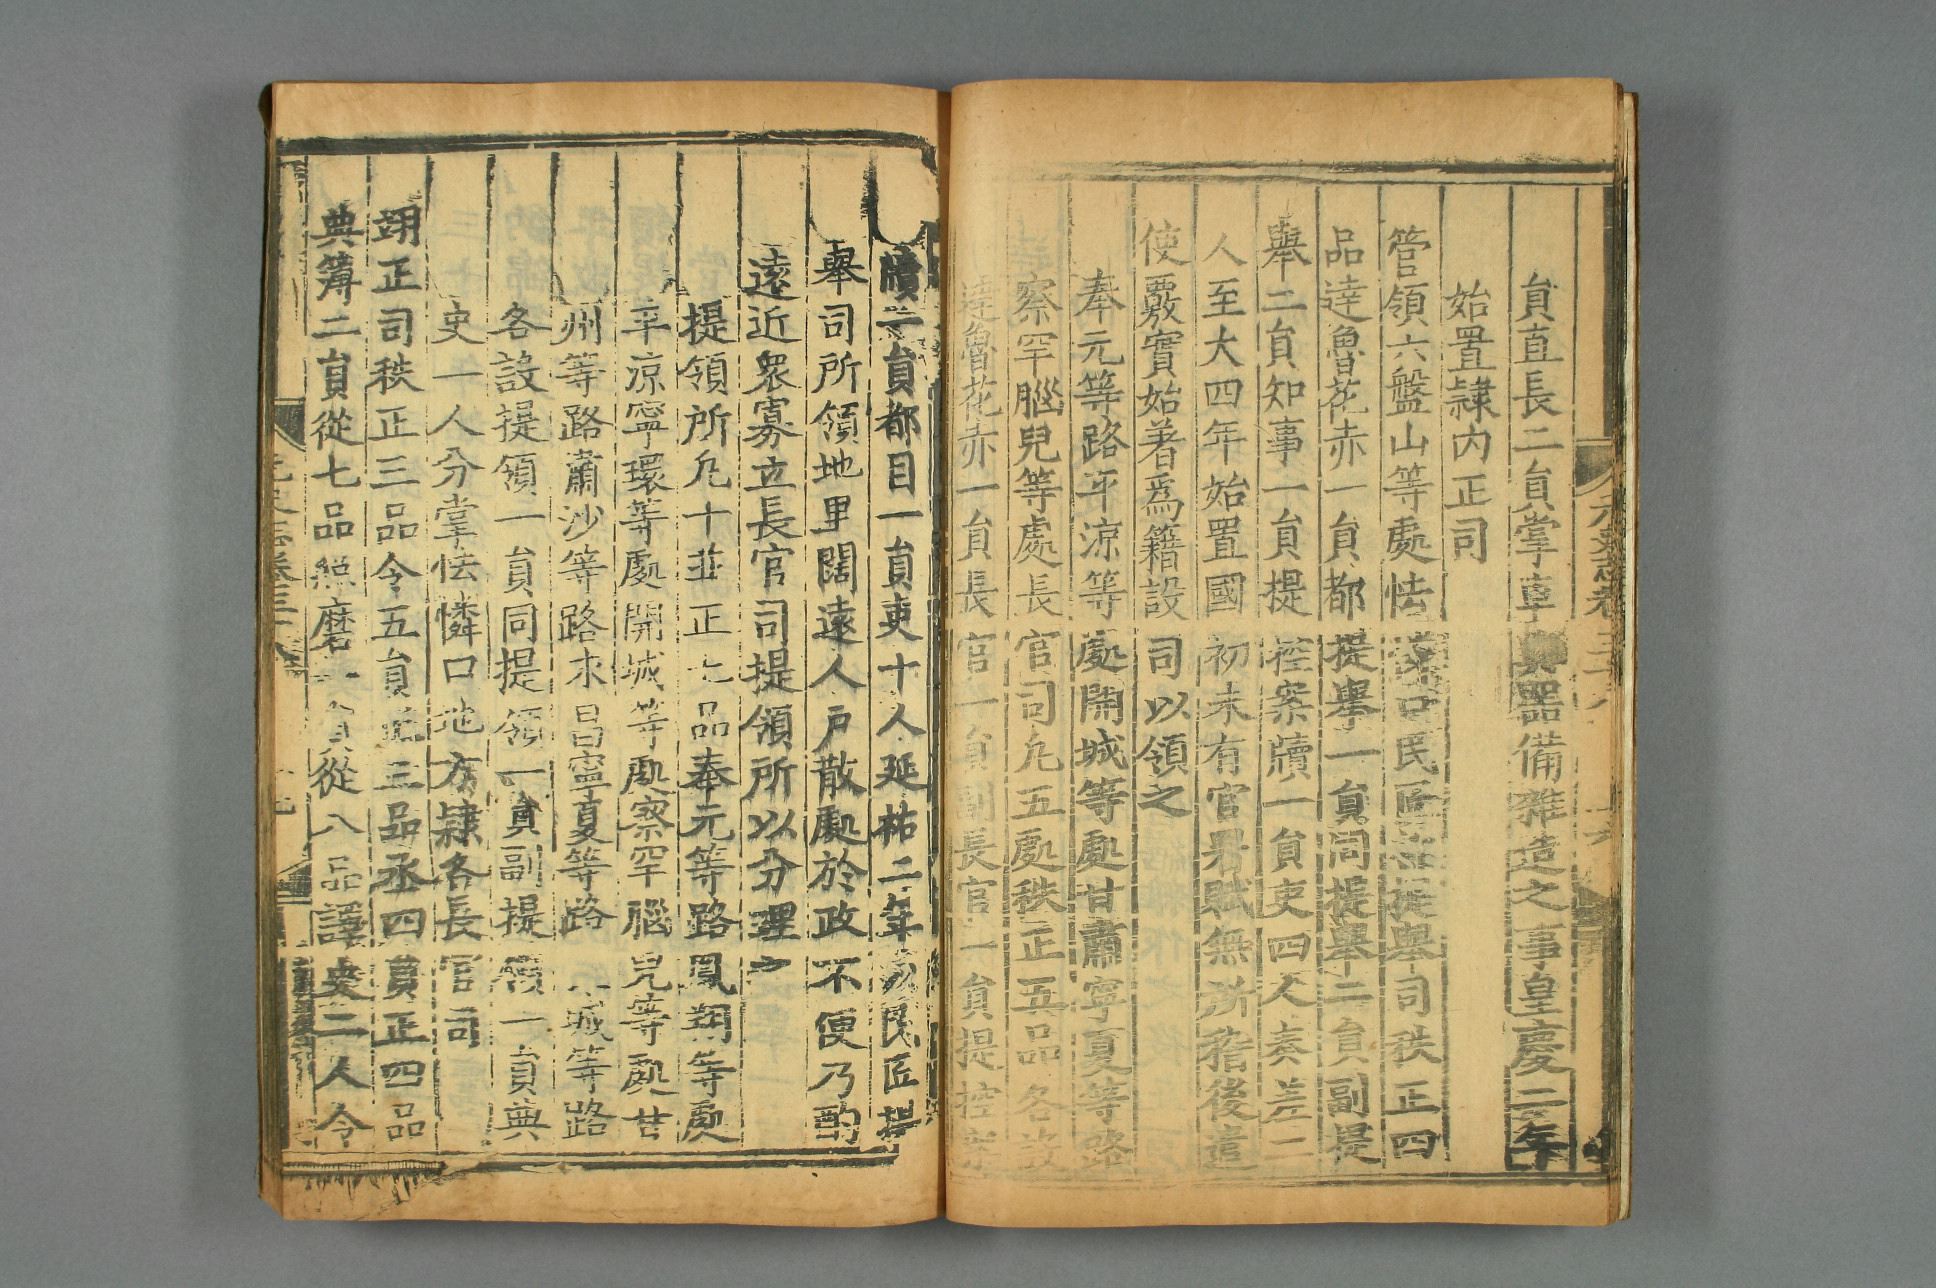 元史志卷三十八
員直長二員掌享具器備雜造之事皇慶二年
始置隷内正司
管領六盤山等處怯憐口民匠都提舉司秩正四
品達魯花赤一員都提舉一員同提舉二員副提
舉二員知事一員提控案牘一員吏四人奏差二
人至大四年始置國初未有官署賦無所稽後遣
使覈實始著爲籍設司以領之
奉元等路平涼等處開城等處甘肅寧夏等路
察罕腦兒等處長官司凡五處秩正五品各設
達魯花赤一員長官一員副長官一員提控案
牘一員都目一員吏十人延祐二年以民匠提
舉司所領地里闊遠人戶散處於政不便乃酌
遠近衆寡立長官司提領所以分理之
提領所凡十並正七品奉元等路鳳翔等處
平涼寧環等處開城等處察罕腦兒等處甘
州等路肅沙等路永昌寧夏等路城等路
各設提領一員同提領一員副提領一員典
史一人分掌怯憐口地方隷各長官司
翊正司秩正三品令五員正三品丞四員正四品
典簿二員從七品照磨一員從八品譯史二人令
元史志卷三十八